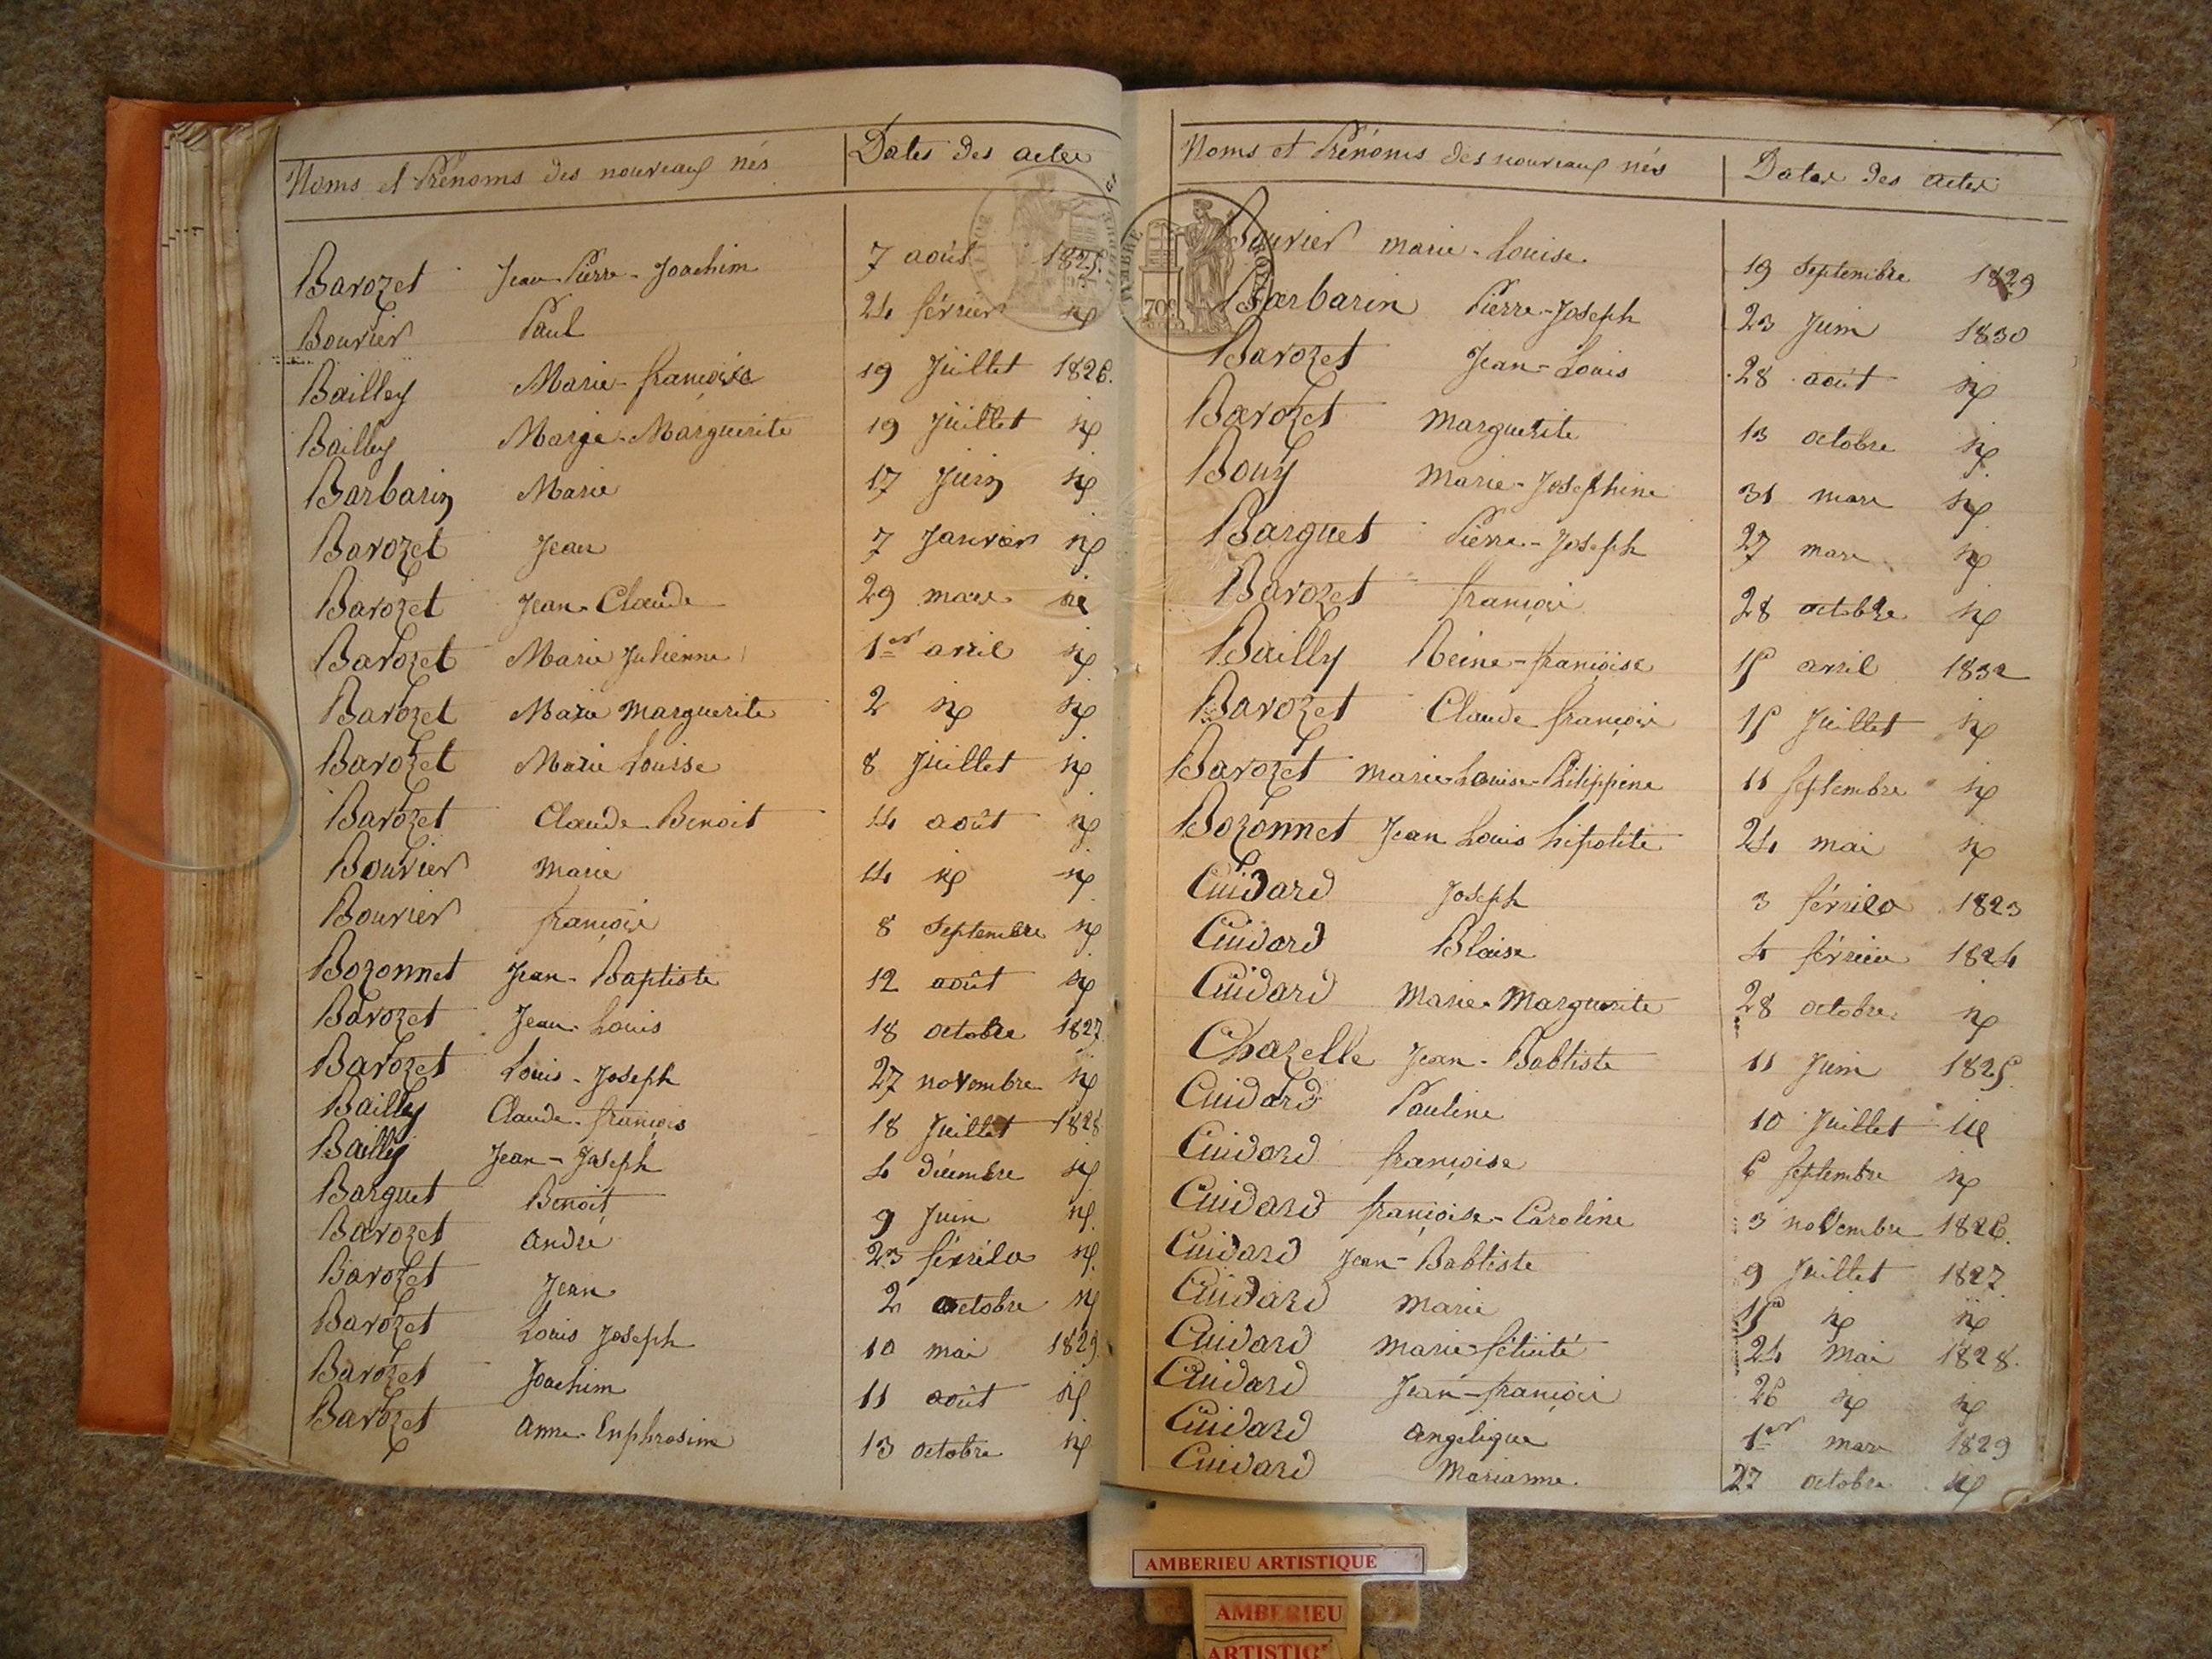 Noms et Prénoms des nouveaux nés Dates des actes
Barozet Jean Pierre-Joachim 7 août 1825.
Bouvier Paul 24 février
Bailley Marie-françoise 19 Juillet 1826.
Bailley Marie-Marguerite 19 Juillet
Barbarin Marie 17 Juin
Barozet Jean 7 Janvier
Barozet Jean-Claude 29 mars
Barozet Marie Julienne 1er avril
Barozet Marie Marguerite 2
Barozet Marie Louisse 8 Juillet
Barozet Claude Benoit 14 août
Bouvier Marie 14
Bouvier françois 8 Septembre
Bozonnet Jean-Baptiste 12 août
Barozet Jean-Louis 18 octobre 1827
Barozet Louis-Joseph 27 novembre
Bailly Claude-françois 18 Juillet 1828
Bailly Jean-Joseph 4 décembre
Barguet Benoit 9 Juin
Barozet andré 23 février
Barozet Jean 2 octobre
Barozet Louis Joseph 10 mai 1829.
Barozet Joachim 11 août
Barozet anne-Euphrosine 13 octobre
Noms et Prénoms des nouveaux nés Dates des actes
Bouvier marie-Louise 19 Septembre 1829
Barbarin Pierre-Joseph 23 Juin 1830
Barozet Jean-Louis 28 août
Barozet Marguerite 13 octobre
Bouy Marie-Josephine 31 mars
Barguet Pierre-Joseph 27 mars
Barozet françois 28 octobre
Bailly Reine-françoise 15 avril 1832
Barozet Claude françois 15 Juillet
Barozet marie-Louise-Philippine 11 Septembre
Bozonnet Jean Louis hipolite 24 mai
Cuidard Joseph 3 février 1823
Cuidard Blaise 4 février 1824
Cuidard Marie-Marguerite 28 octobre
Chazelle Jean-Babtiste 11 Juin 1825.
Cuidard Pauline 10 Juillet
Cuidard françoise 6 Septembre
Cuidard françoise-Caroline 3 novembre 1826.
Cuidard Jean-Babtiste 9 Juillet 1827
Cuidard Marie 15
Cuidard Marie félicité 24 Mai 1828.
Cuidard Jean-françois 26
Cuidard angelique 1er mars 1829
Cuidard Marianne. 27 octobre
TIMBRE ROYAL
70c
AMBERIEU ARTISTIQUE
AMBERIEU
ARTISTIQ